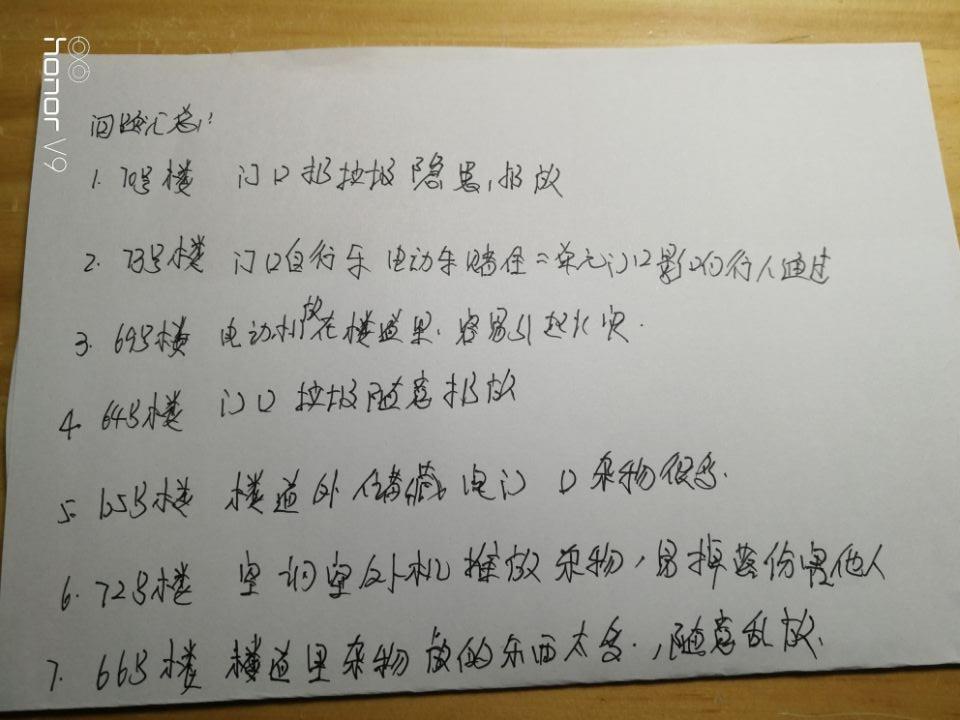 问题汇总:
1. 70号楼 门口扔垃圾隐患,扔放
2. 73号楼 门口自行车 电动车堵住二单元门口影响行人通过
3. 69号楼 电动机放在楼道里.容易引起火灾.
4. 64号楼 门口 垃圾随意扔放
5. 65号楼 楼道外储藏 门口杂物很多.
6. 72号楼 空调室外机堆放杂物,易掉落伤害他人
7. 66号楼 楼道里杂物放的东西太多.,随意乱放.
honor V9